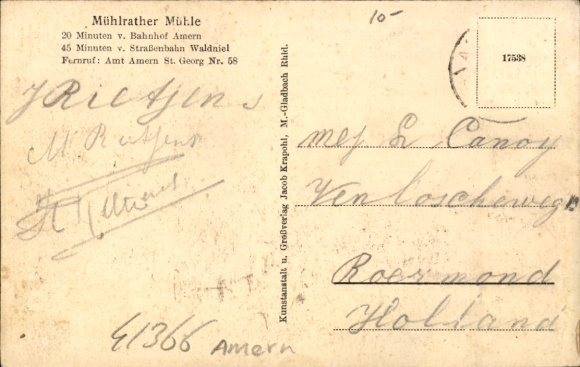 Mühlrather Mühle
20 Minuten v. Bahnhof Amern
45 Minuten v. Straßenbahn Waldniel
Fernruf: Amt Amern St. Georg Nr. 58
J Rietjens
M Rietjens
41366 Amern
Kunstanstalt u. Großverlag Jacob Krapohl, M.-Gladbach Rhld.
10-
17538
mej L Canoy
Venloscheweg
Roermond
Holland